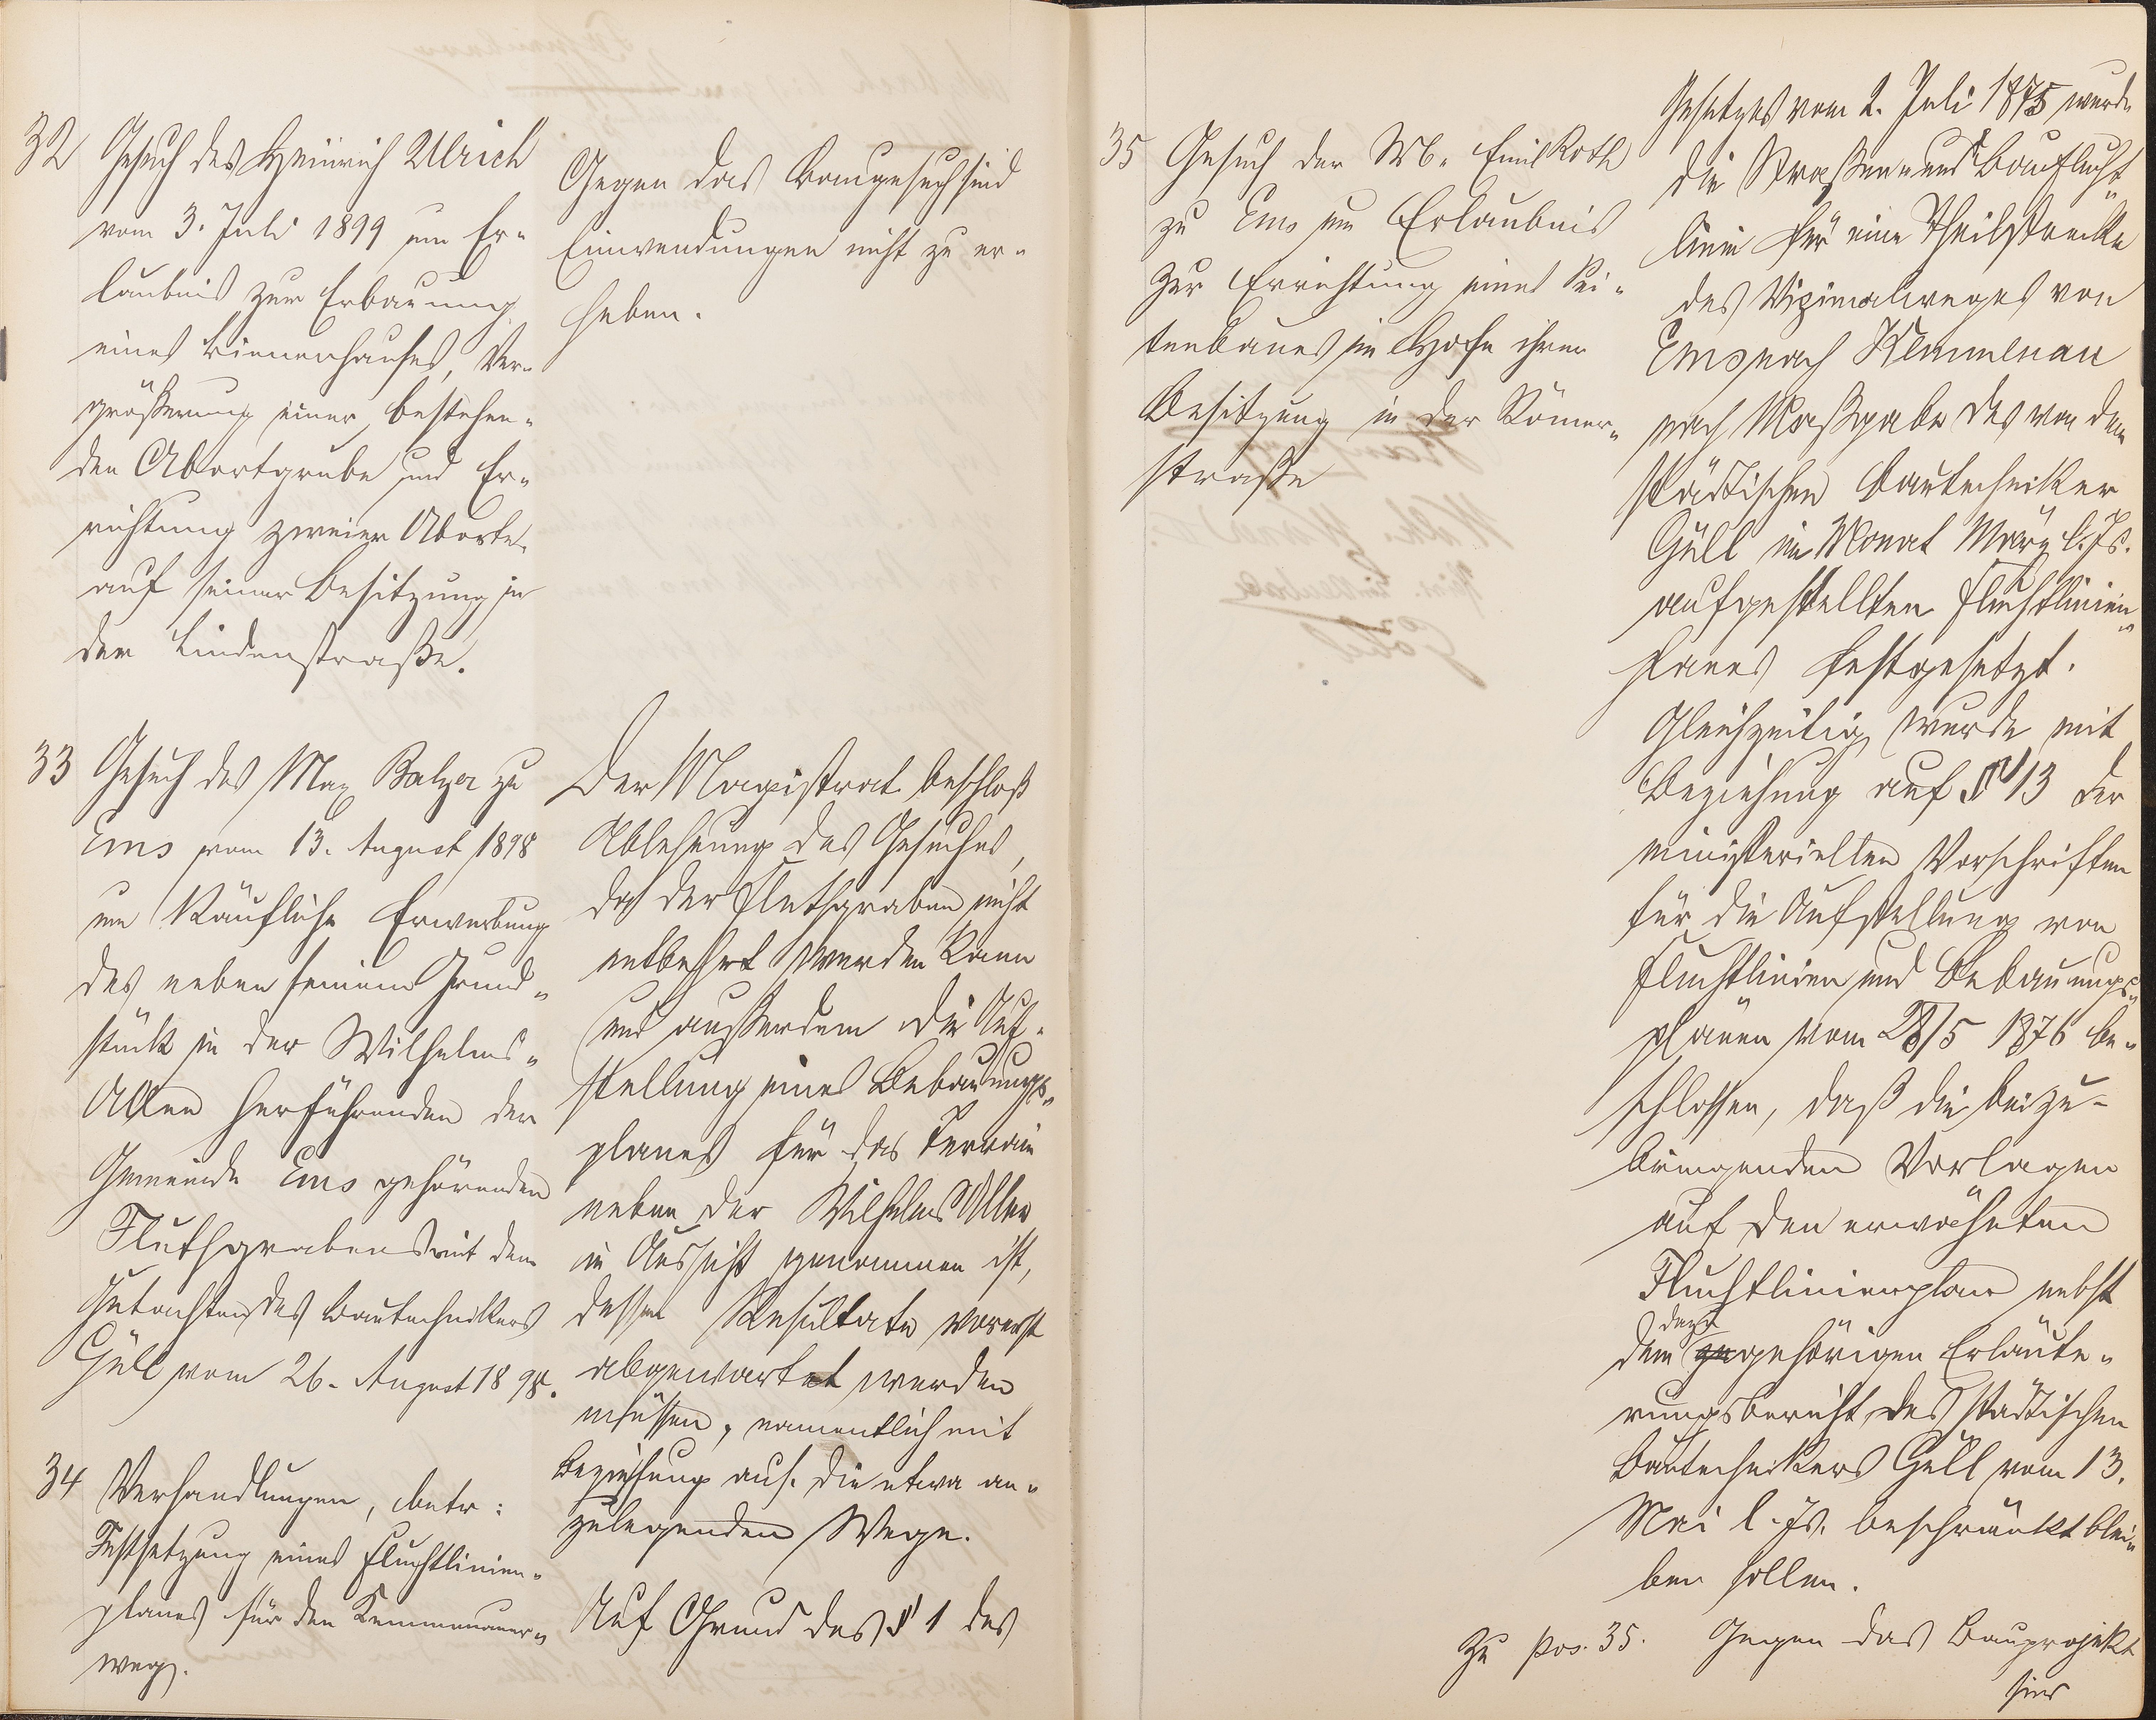 32
Gesuch des Heinrich Ulrich
vom 3. Juli 1899 um Er-
laubnis zur Erbauung
eines Bienenhauses, Ver-
größerung einer bestehen-
den Abortgrube und Er-
richtung zweier Aborte
auf seiner Besitzung in
der Lindenstraße.
Gegen das Baugesuch sind
Einwendungen nicht zu er-
heben.
33
Gesuch des Max Balzer zu
Ems vom 13. August 1898
um käufliche Erwerbung
des neben seinem Grund-
stück in der Wilhelms-
Allee herführenden der
Gemeinde Ems gehörenden
Fluthgrabens mit dem
Gutachten des Bautechnikers
Güll vom 26. August 1898.
Der Magistrat beschloß
Ablehnung des Gesuches,
da der Fluthgraben nicht
entbehrt werden kann
und außerdem die Auf-
stellung eines Bebauungs-
planes für das Terrain
neben der Wilhelms Allee
in Aussicht genommen ist,
dessen Resultate vorerst
abgewartet werden
müssen, namentlich mit
Beziehung auf die etwa an-
zulegenden Wege.
34
Verhandlungen, betr:
Festsetzung eines Fluchtlinien-
planes für den Kemmenauer-
weg.
Auf Grund des § 1 des
35
Gesuch der Wb. Emil Roth
zu Ems um Erlaubnis
zur Errichtung eines Sei-
tenbaues im Hofe ihrer
Besitzung in der Römer-
straße
Gesetzes vom 2. Juli 1875 wurde
die Straßen- und Baufluch-
linie für eine Theilstrecke
des Vizinalweges von
Ems nach Kemmenau
nach Maßgabe des von dem
städtischen Bautechniker
Güll im Monat März l. Js.
aufgestellten Fluchtlinien-
planes festgesetzt.
Gleichzeitig wurde mit
Beziehung auf § 13 der
ministeriellen Vorschriften
für die Aufstellung von
Fluchtlinien und Bebauungs-
plänen vom 28/5 1876 be-
schlossen, daß die beizu-
bringenden Vorlagen
auf den erwähnten
Fluchtlinienplan nebst
dem dazugehörigen Erläute-
rungsbericht des städtischen
Bautechnikers Güll vom 13.
Mai l. Js. beschränkt blei-
ben sollen.
Zu pos. 35. Gegen das Bauprojekt
sind